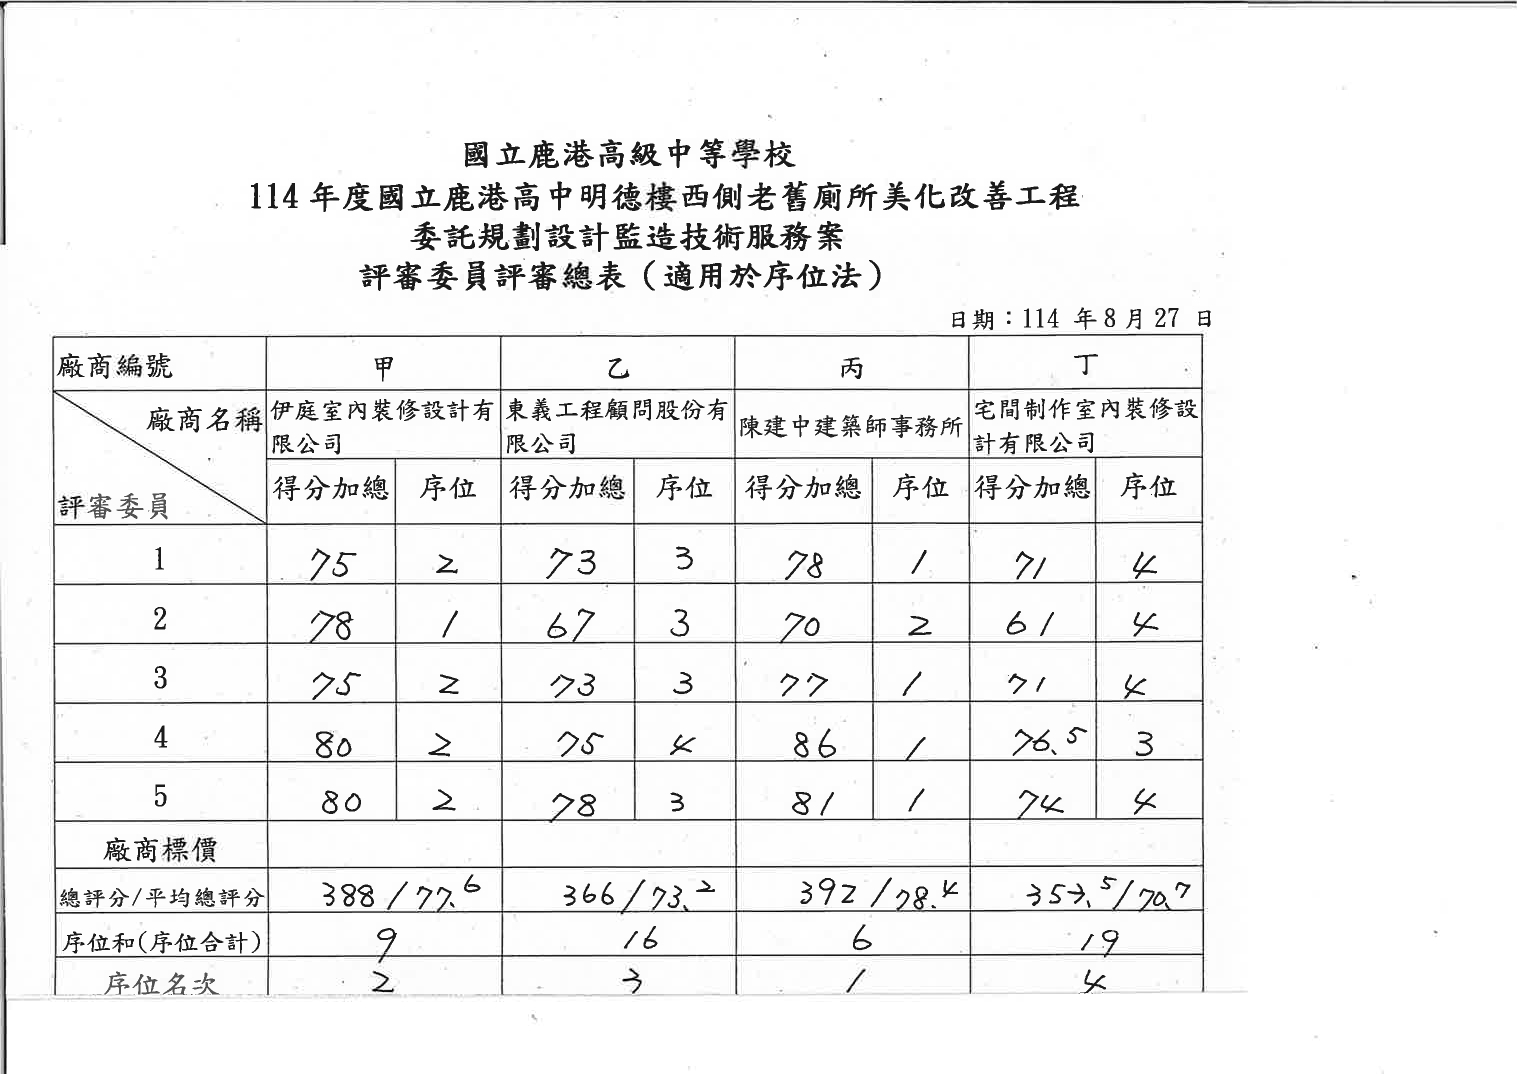 國立鹿港高級中等學校
114 年度國立鹿港高中明德樓西側老舊廁所美化改善工程
委託規劃設計監造技術服務案
評審委員評審總表（適用於序位法）
日期：114 年 8 月 27 日
廠商編號 甲 乙 丙 丁
廠商名稱 伊庭室內裝修設計有限公司 東義工程顧問股份有限公司 陳建中建築師事務所 宅間制作室內裝修設計有限公司
評審委員 得分加總 序位 得分加總 序位 得分加總 序位 得分加總 序位
1 75 2 73 3 78 1 71 4
2 78 1 67 3 70 2 61 4
3 75 2 73 3 77 1 71 4
4 80 2 75 4 86 1 76.5 3
5 80 2 78 3 81 1 74 4
廠商標價
總評分/平均總評分 388/77.6 366/73.2 392/78.4 353.5/70.7
序位和(序位合計) 9 16 6 19
序位名次 2 3 1 4